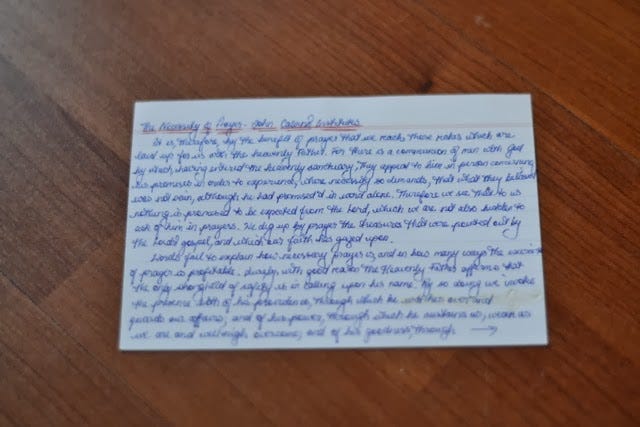 The Necessity of Prayer - John Calvin's Institutes
It is, therefore, by the benefit of prayer that we reach those riches which are
laid up for us with the heavenly Father. For there is a communion of men with God
by which, having entered the heavenly sanctuary, they appeal to him in person concerning
his promises in order to experience, where necessity so demands, that what they believed
was not vain, although he had promised it in word alone. Therefore we see that to us
nothing is promised to be expected from the Lord, which we are not also bidden to
ask of him in prayers. We dig up by prayer the treasures that were pointed out by
the Lord's gospel, and which our faith has gazed upon.
Words fail to explain how necessary prayer is, and in how many ways the exercise
of prayer is profitable. Surely, with good reason the Heavenly Father affirms that
the only stronghold of safety is in calling upon his name. By so doing we invoke
the presence both of his providence, through which he watches over and
guards our affairs, and of his power, through which he sustains us, weak as
we are and well-nigh overcome, and of his goodness, through →